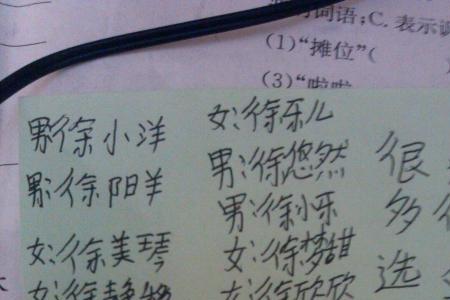 词语;C.表示
(1)“摊位”(
(3)“啦啦
男:徐小洋
男:徐阳羊
女:徐美琴
女:徐静
女:徐乐儿
男:徐悠然
男:徐小乐
女:徐梦甜
女:徐欣欣
很
多
选